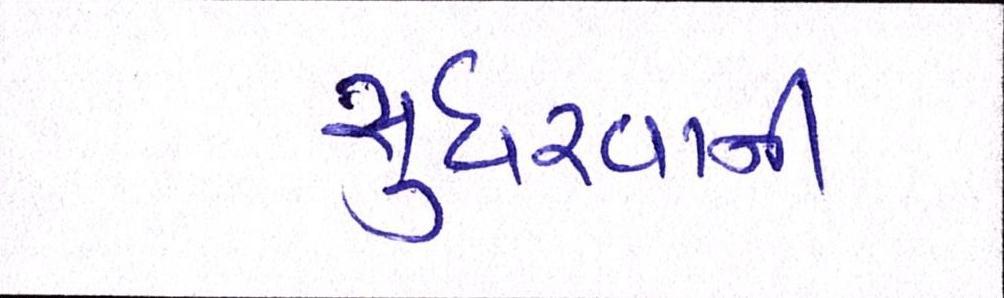 સુધરવાની